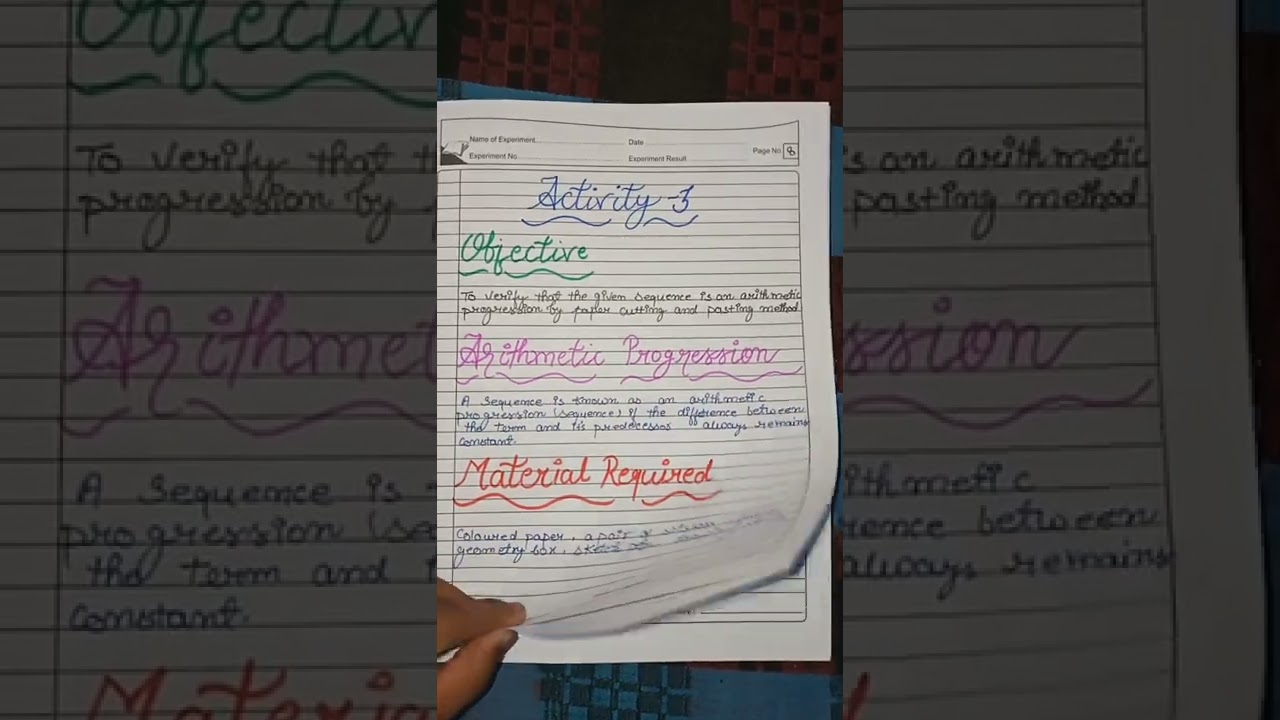 Name of Experiment
Date
Experiment No
Experiment Result
Page No 8
Activity-3
Objective
To verify that the given sequence is an arithmetic
progression by paper cutting and pasting method
Arithmetic Progression
A sequence is known as an arithmetic
progression (sequence) if the difference between
the term and tis predecessos always remains
constant.
Material Required
Coloured paper, a pair
geometry box,